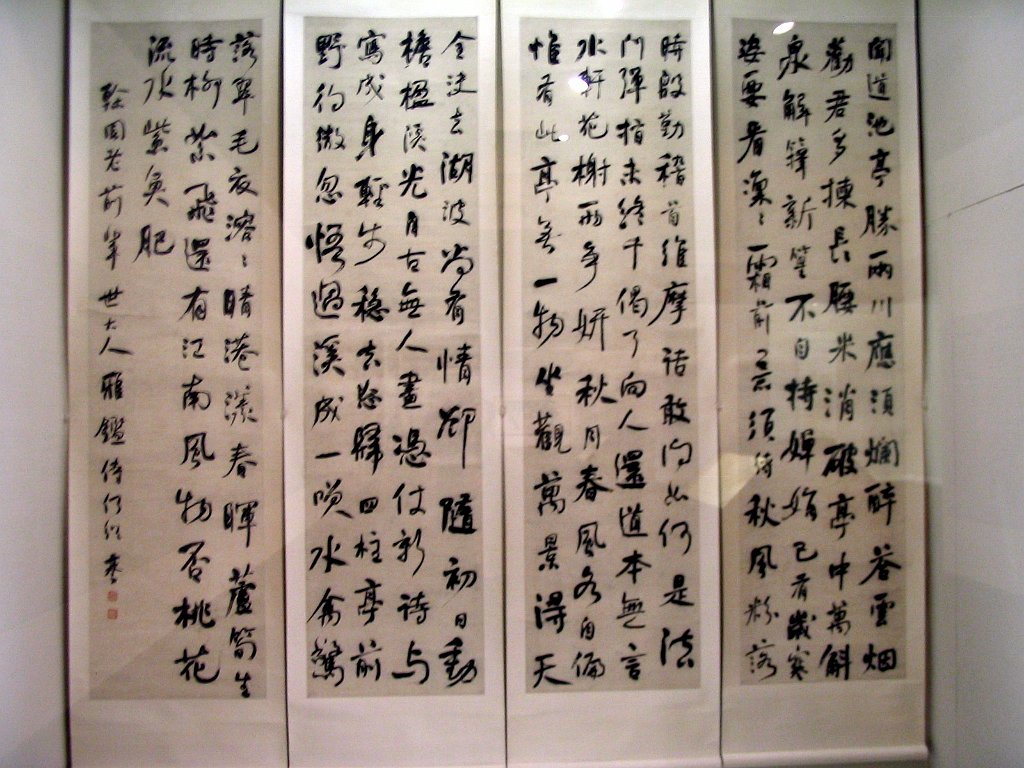 聞道池亭勝兩川應須爛醉答雲烟
勸君多揀長腰米消破亭中萬斛
泉解籜新篁不自持嬋娟已有歲寒
姿要看凜〻霜前意須待秋風粉落
時殷勤稽首維摩詰敢問如何是法
門彈指未終千偈了向人還道本無言
水軒花榭兩爭妍秋月春風各自偏
惟有此亭無一物坐觀萬景得天
全決去湖波尚有情卻隨初日動
檐楹溪光自古無人畫憑仗新詩與
寫成身輕步穩去忘歸四柱亭前
野彴微忽悟過溪成一笑水禽驚
落翠毛衣溶〻晴港漾春暉蘆筍生
時柳絮飛還有江南風物否桃花
流水紫魚肥
園老前輩世大人雅鑑侍何紹基